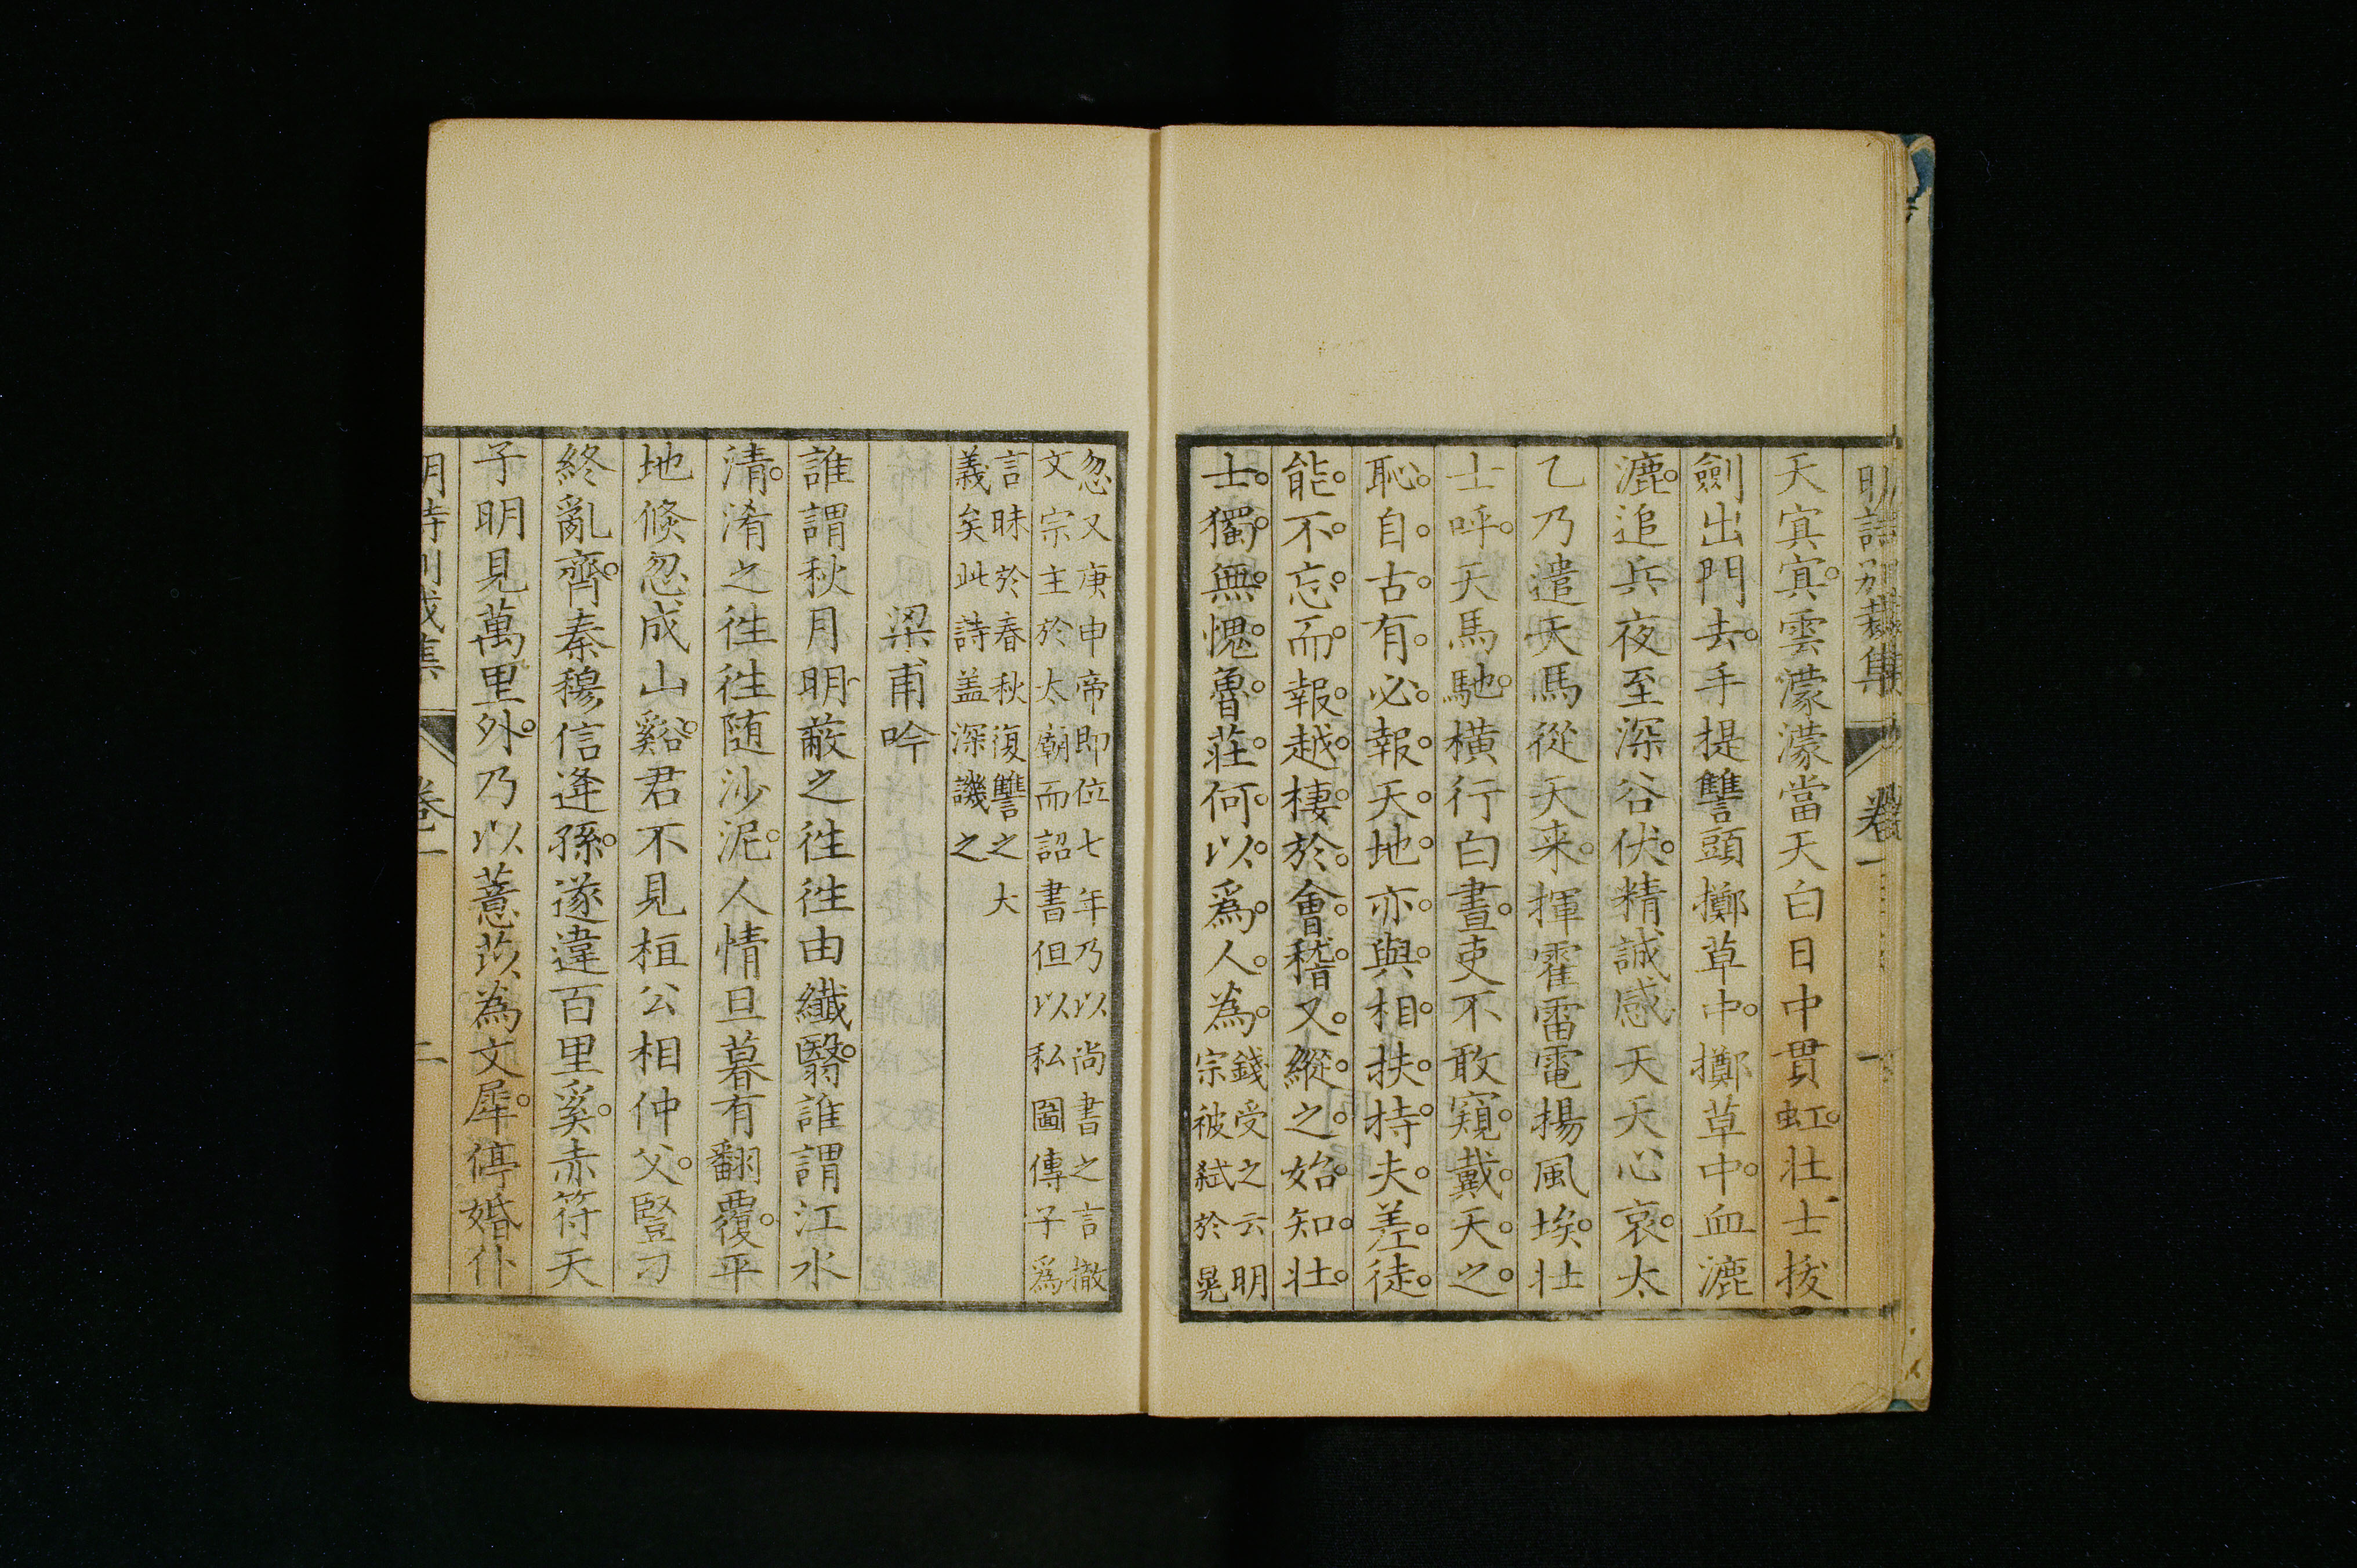 明詩別裁集 卷一 一
天㝠㝠雲濛濛當天白日中貫虹壯士拔
劍出門去手提讐頭擲草中擲草中血漉
漉追兵夜至深谷伏精誠感天天心哀太
乙乃遣天馬從天来揮霍雷電揚風埃壯
士呼天馬馳橫行白晝吏不敢窺戴天之
恥自古有必報天地亦與相扶持夫差徒
能不忘而報越棲於會稽又縱之始知壯
士獨無愧魯莊何以爲人為
錢受之云明
宗被弒於晃
忽又庚申帝即位七年乃以尚書之言撤
文宗主於太廟而詔書但以私圖傳子爲
言昧於春秋復讐之大
義矣此詩盖深譏之
梁甫吟
誰謂秋月明蔽之徃徃由纖翳誰謂江水
清淆之徃徃随沙泥人情旦暮有翻覆平
地倐忽成山谿君不見桓公相仲父豎刁
終亂齊秦穆信逢孫遂違百里奚赤符天
子明見萬里外乃以薏苡為文犀停婚仆
明詩別裁集 卷一 二